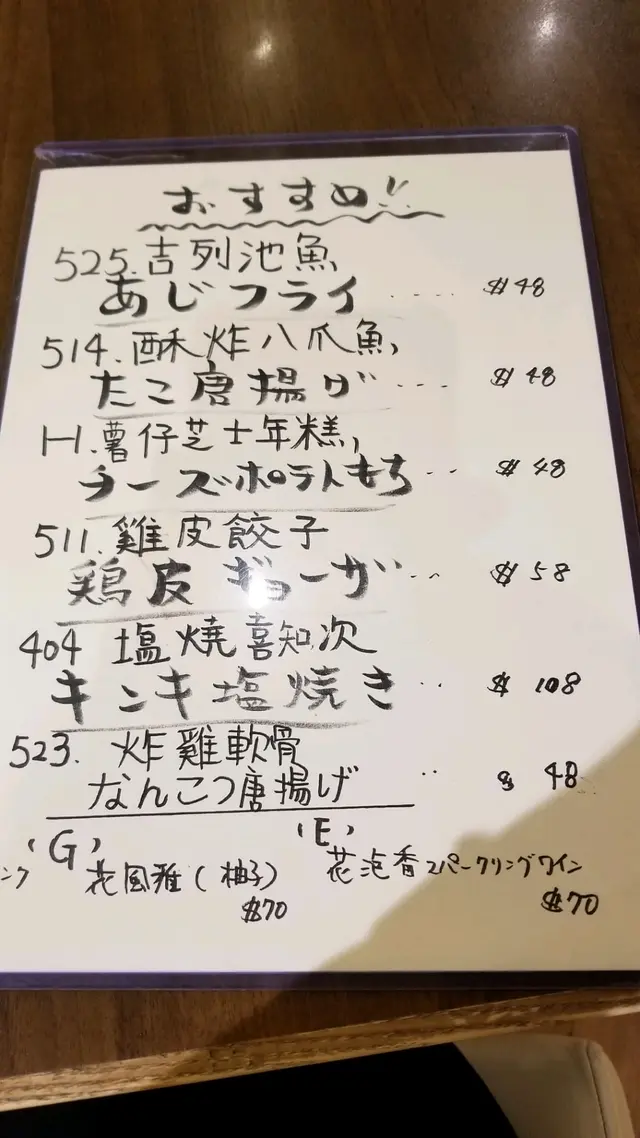 おすすめ!!
525.吉列池魚
あじフライ ..... $48
514.酥炸八爪魚,
たこ唐揚げ ... $48
H.薯仔芝士年糕,
チーズポテトもち .. $48
511.雞皮餃子
鶏皮ギョーザ .. $58
404 塩燒喜知次
キンキ塩焼き .. $108
523. 炸雞軟骨
なんこつ唐揚げ .. $48
'G' 'E'
ンク 花風雅(柚子) 花泡香スパークリングワイン
$70 $70